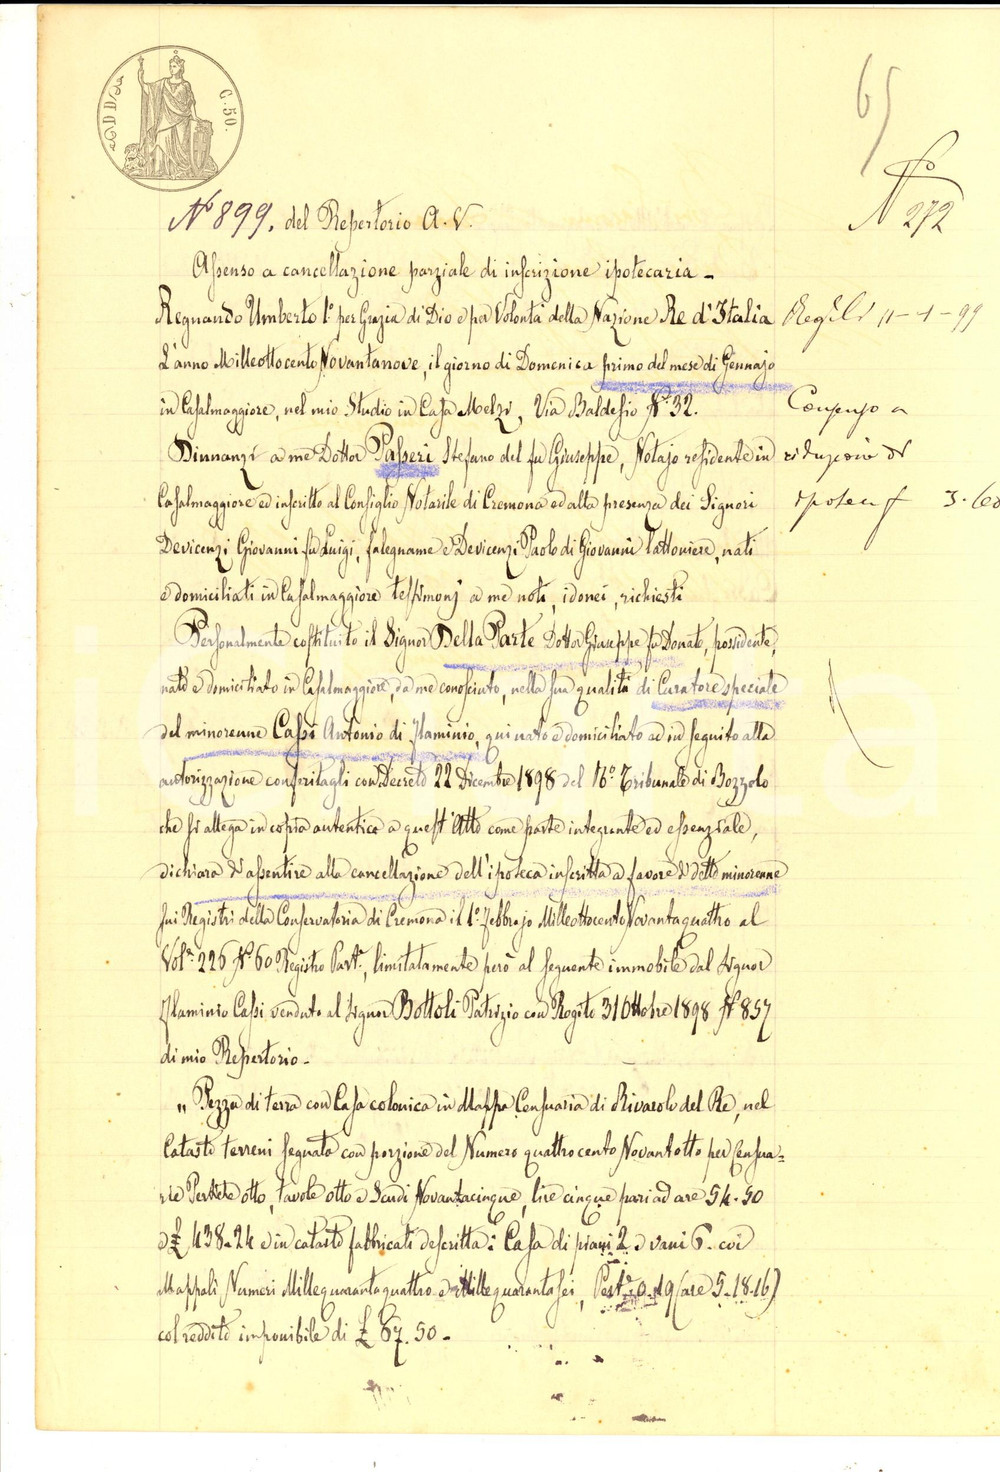 C. 50.
65
N° 272
N° 899. del Repertorio A. V.
Assenso a cancellazione parziale di inscrizione ipotecaria -
Regnando Umberto I° per Grazia di Dio e per Volontà della Nazione Re d'Italia
L'anno Milleottocento Novantanove, il giorno di Domenica primo del mese di Gennajo
in Casalmaggiore, nel mio Studio in Casa Melzi, Via Baldesio N° 32.
Dinnanzi a me Dottor Passeri Stefano del fu Giuseppe, Notajo residente in
Casalmaggiore ed inscritto al Consiglio Notarile di Cremona ed alla presenza dei Signori
Devicenzi Giovanni fu Luigi, falegname e Devicenzi Paolo di Giovanni Lattoniere, nati
e domiciliati in Casalmaggiore testimonj a me noti, idonei, richiesti
Personalmente costituito il Signor Della Parte Dottor Giuseppe fu Donato, possidente,
nato e domiciliato in Casalmaggiore, da me conosciuto, nella sua qualità di Curatore speciale
del minorenne Cassi Antonio di Flaminio, qui nato e domiciliato ed in seguito alla
autorizzazione conferitagli con Decreto 22 Dicembre 1898 del R° Tribunale di Bozzolo
che si allega in copia autentica a quest'Atto come parte integrante ed essenziale,
dichiara d'assentire alla cancellazione dell'ipoteca inscritta a favore di detto minorenne
sui Registri della Conservatoria di Cremona il 1° Febbrajo Milleottocento Novantaquattro al
Vol° 226 N° 60 Registro Part°, limitatamente però al seguente immobile dal Signor
Flaminio Cassi venduto al Signor Bottoli Patrizio con Rogito 31 Ottobre 1898 N° 857
di mio Repertorio -
„ Pezza di terra con Casa colonica in Mappa Censuaria di Rivarolo del Re, nel
Catasto terreni segnata con porzione del Numero quattrocento Novantotto per Censua=
rie Pertiche otto, tavole otto e Scudi Novantacinque, lire cinque pari ad are 54.50
e £ 438.24 e in catasto fabbricati descritta: Casa di piani 2 e vani 6. coi
Mappali Numeri Millequarantaquattro e Millequarantasei, Pert° 0.19 (are 5.18.16)
col reddito imponibile di £ 67.50 -
11-1-99
Consenso a
riduzione di
3.60